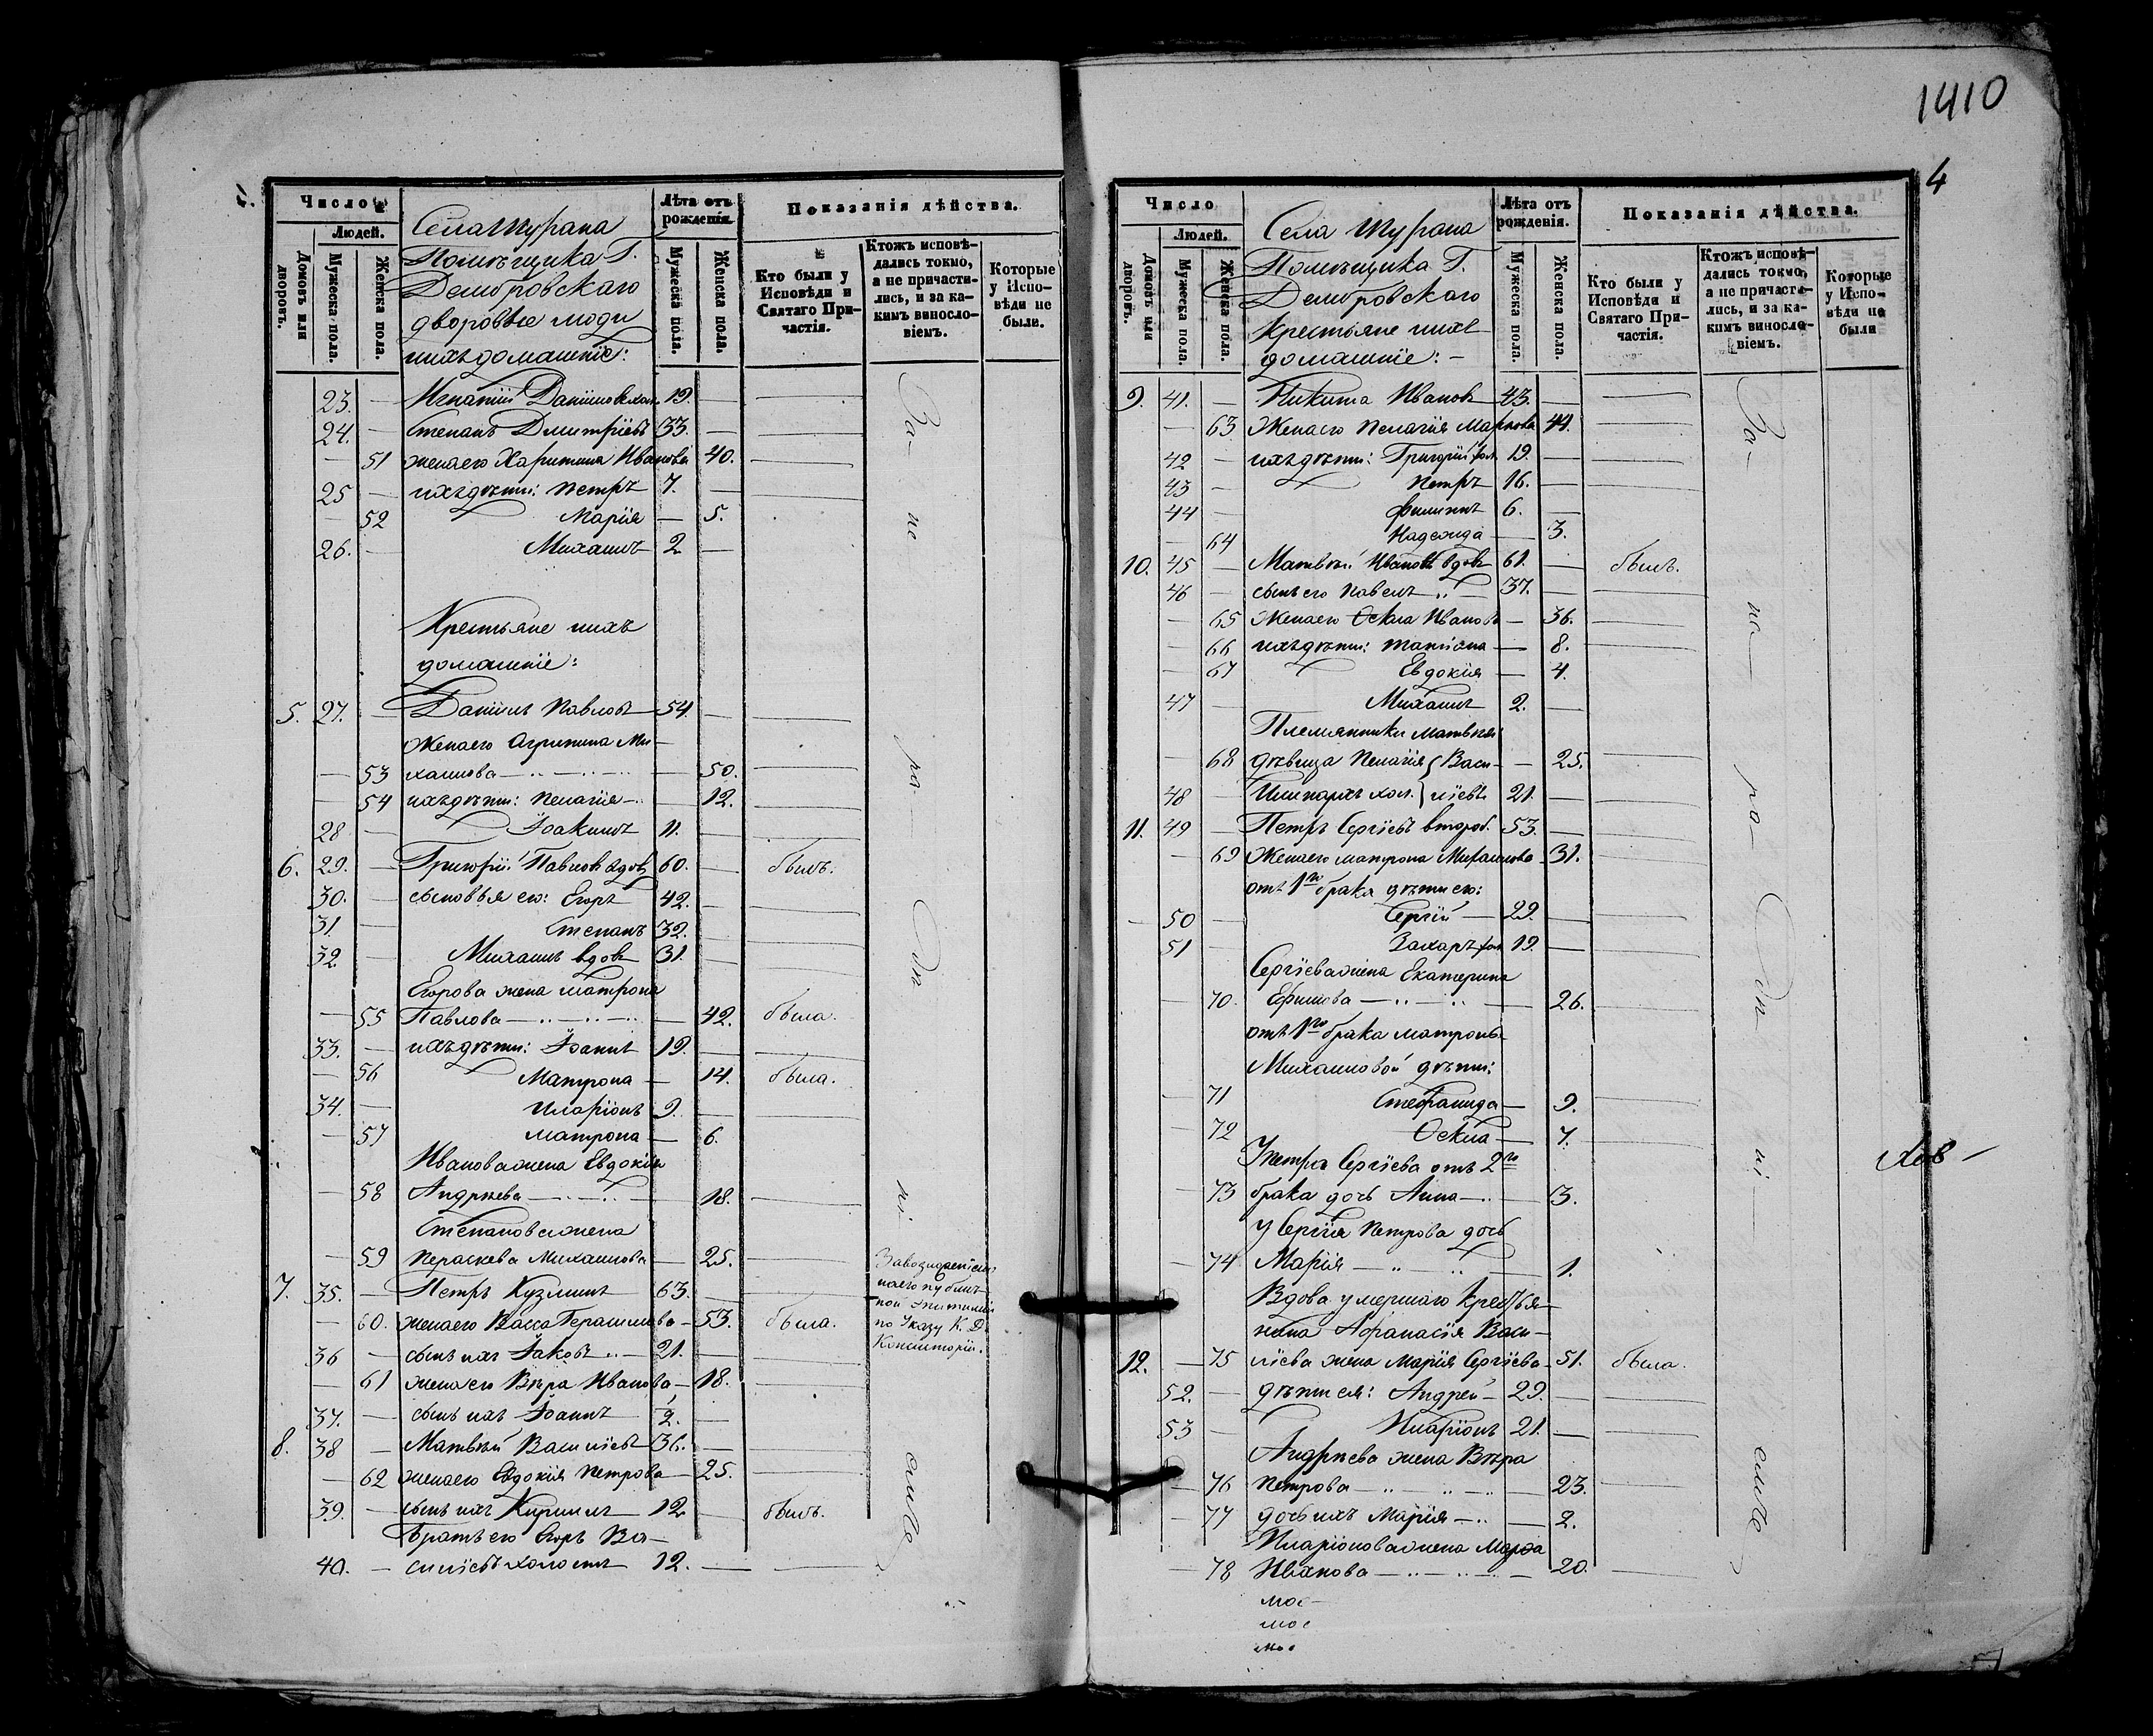 Число
Людей.
Домовъ или дворовъ.
Мужеска пола.
Женска пола.
Села Шурана
Помѣщика Г.
дворовые люди
ихъ домашніе:
Лѣта отъ рожденія.
Мужеска пола.
Женска пола.
Показанія дѣйства.
Кто были у Исповѣди и Святаго Причастія.
Ктожъ исповѣдались токмо, а не причастились, и за какимъ винословіемъ.
Которые у Исповѣди не были.
23. — Игнатій 19. —
24. — Степанъ Дмитріевъ 33 —
— 51 жена его Харитина Иванова 40.
25 — ихъ дѣти: Петръ 7. —
— 52 Марія — 5.
26. — Михаилъ 2 —
Крестьяне ихъ
домашніе:
5. 27. — Даніилъ Павловъ 54. —
Жена его Агрипина Ми-
— 53 хаилова — 50.
— 54 ихъ дѣти: Пелагія — 12.
28 — Іоакимъ 11. —
6. 29. — Григорій Павловъ вдов 60. — былъ.
30. — сыновья его: Егоръ 42. —
31. — Степанъ 32. —
32. — Михаилъ вдовъ 31. —
Егорова жена Матрона
— 55 Павлова — 42. была.
33. — ихъ дѣти: Іоаннъ 19. —
— 56 Матрона — 14. была.
34. — Иларіонъ 9. —
— 57 Матрона — 6.
Иванова жена Евдокія
— 58 Андреева — 18.
Степанова жена
— 59 Параскева Михаилова — 25.
7. 35. — Петръ Кузминъ 63. —
— 60. жена его Васса Герасимова — 53. была.
36 — сынъ ихъ Іаковъ 21. —
— 61 жена его Вѣра Иванова — 18.
37. — сынъ ихъ Іоаннъ 2. —
8. 38 — Матвѣй Василіевъ 36. —
— 62 жена его Евдокія Петрова — 25.
39. — сынъ ихъ Кириллъ 12 — былъ.
братъ его Егоръ Ва-
40. — силіевъ холостъ 12. —
За не ра дѣ ні емъ
по Указу К. Д.
Консисторіи.
1410
4
Число
Людей.
Домовъ или дворовъ.
Мужеска пола.
Женска пола.
Села Шурана
Помѣщика Г.
Крестьяне ихъ
домашніе: —
Лѣта отъ рожденія.
Мужеска пола.
Женска пола.
Показанія дѣйства.
Кто были у Исповѣди и Святаго Причастія.
Ктожъ исповѣдались токмо, а не причастились, и за какимъ винословіемъ.
Которые у Исповѣди не были
9. 41. — Никита Ивановъ 43. —
— 63 Жена его Пелагія Маркова 44.
42 — ихъ дѣти: Григорій хол. 19. —
43 — Петръ 16. —
44 — Филиппъ 6. —
— 64 Надежда — 3.
10. 45 — Матвѣй Ивановъ вдовъ 61. — былъ.
46 — сынъ его Павелъ 37. —
— 65 Жена его Оекла Иванова — 36.
— 66 ихъ дѣти: Татіана — 8.
— 67 Евдокія — 4.
47 — Михаилъ 2. —
Племянники Матвѣя
— 68 дѣвица Пелагія Васи- — 25.
48 — хол. ліевы 21. —
11. 49 — Петръ Сергіевъ второб. 53. —
— 69 Жена его Матрона Михаилова 31.
отъ 1го брака дѣти его:
— 50 — Сергій — 29. —
51 — Захаръ хол 19. —
Сергіева жена Екатерина
— 70. Ефимова — 26.
отъ 1го брака Матроны
Михаиловой дѣти:
— 71 Стефанида — 9.
— 72 Оекла — 7.
У Петра Сергіева отъ 2го
— 73 брака дочь Анна — 3.
у Сергія Петрова дочь
— 74 Марія — 1.
Вдова умершаго крестья-
нина Афанасія Васи-
12. — 75 ліева жена Марія Сергіева — 51. была.
52. — дѣти ея: Андрей — 29. —
53 — Иларіонъ 21. —
Андреева жена Вѣра
— 76 Петрова — 23.
— 77 дочь ихъ Марія — 2.
Иларіонова жена Марѳа
— 78 Иванова — 20.
За не ра дѣ ні емъ